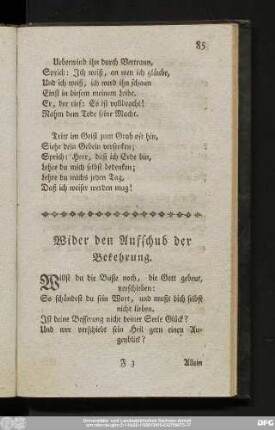 85
Ueberwind ihn durch Vertraun,
Sprich: Ich weiß, an wen ich gläube,
Und ich weiß, ich werd ihn schaun
Einst in diesem meinem Leibe.
Er, der rief: Es ist vollbracht!
Nahm dem Tode seine Macht.
Tritt im Geist zum Grab oft hin,
Siehe dein Gebein versenken;
Sprich: Herr, daß ich Erde bin,
Lehre du mich selbst bedenken;
Lehre du michs jeden Tag,
Daß ich weiser werden mag!
Wider den Aufschub der
Bekehrung.
Willst du die Buße noch, die Gott gebeut,
verschieben:
So schändest du sein Wort, und mußt dich selbst
nicht lieben.
Ist deine Besserung nicht deiner Seele Glück?
Und wer verschiebt sein Heil gern einen Au-
genblick?
F 3 Allein
Universitäts- und Landesbibliothek Sachsen-Anhalt